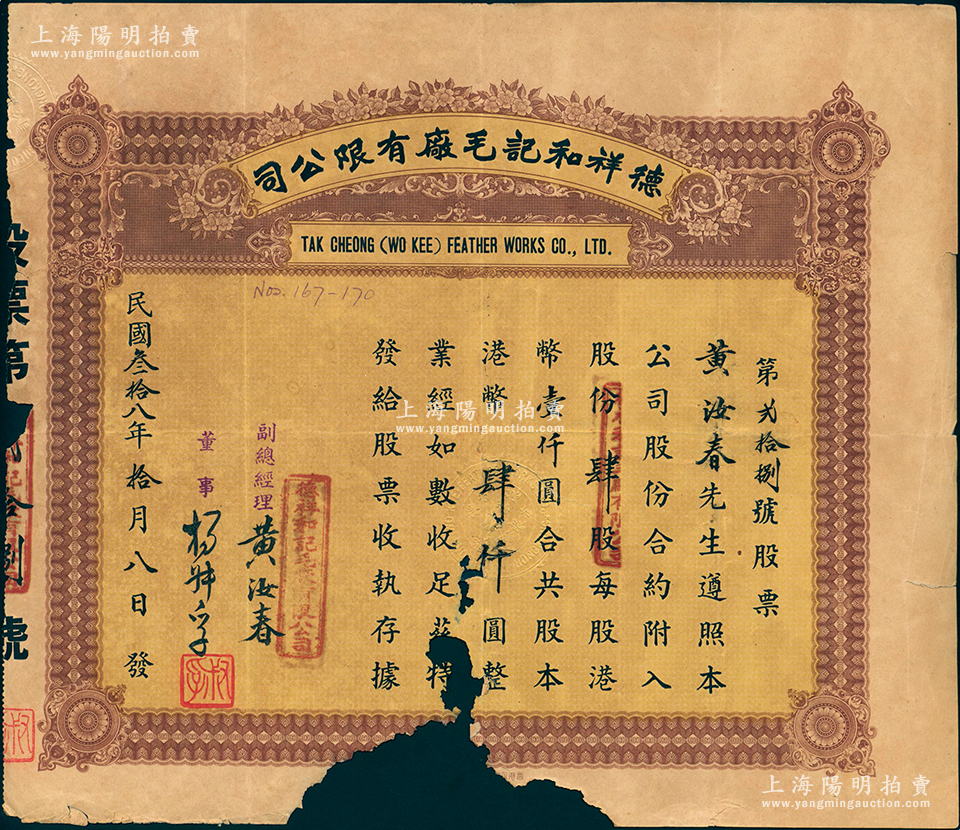 上海陽明拍賣
www.yangmingauction.com
德祥和記毛廠有限公司
TAK CHEONG (WO KEE) FEATHER WORKS CO., LTD.
Nos. 167-170
第弍拾捌號股票
黃汝春先生遵照本
公司股份合約附入
股份肆股每股港
幣壹仟圓合共股本
港幣肆仟圓整
業經如數收足茲特
發給股票收執存據
德祥和記毛廠有限公司
副總經理 黃汝春
董事 楊淑孚
淑孚
民國叁拾八年拾月八日發
股票第 拾捌 號
上海陽明拍賣
www.yangmingauction.com
上海陽明拍賣
www.yangmingauction.com
上海陽明拍賣
www.yangmingauction.com